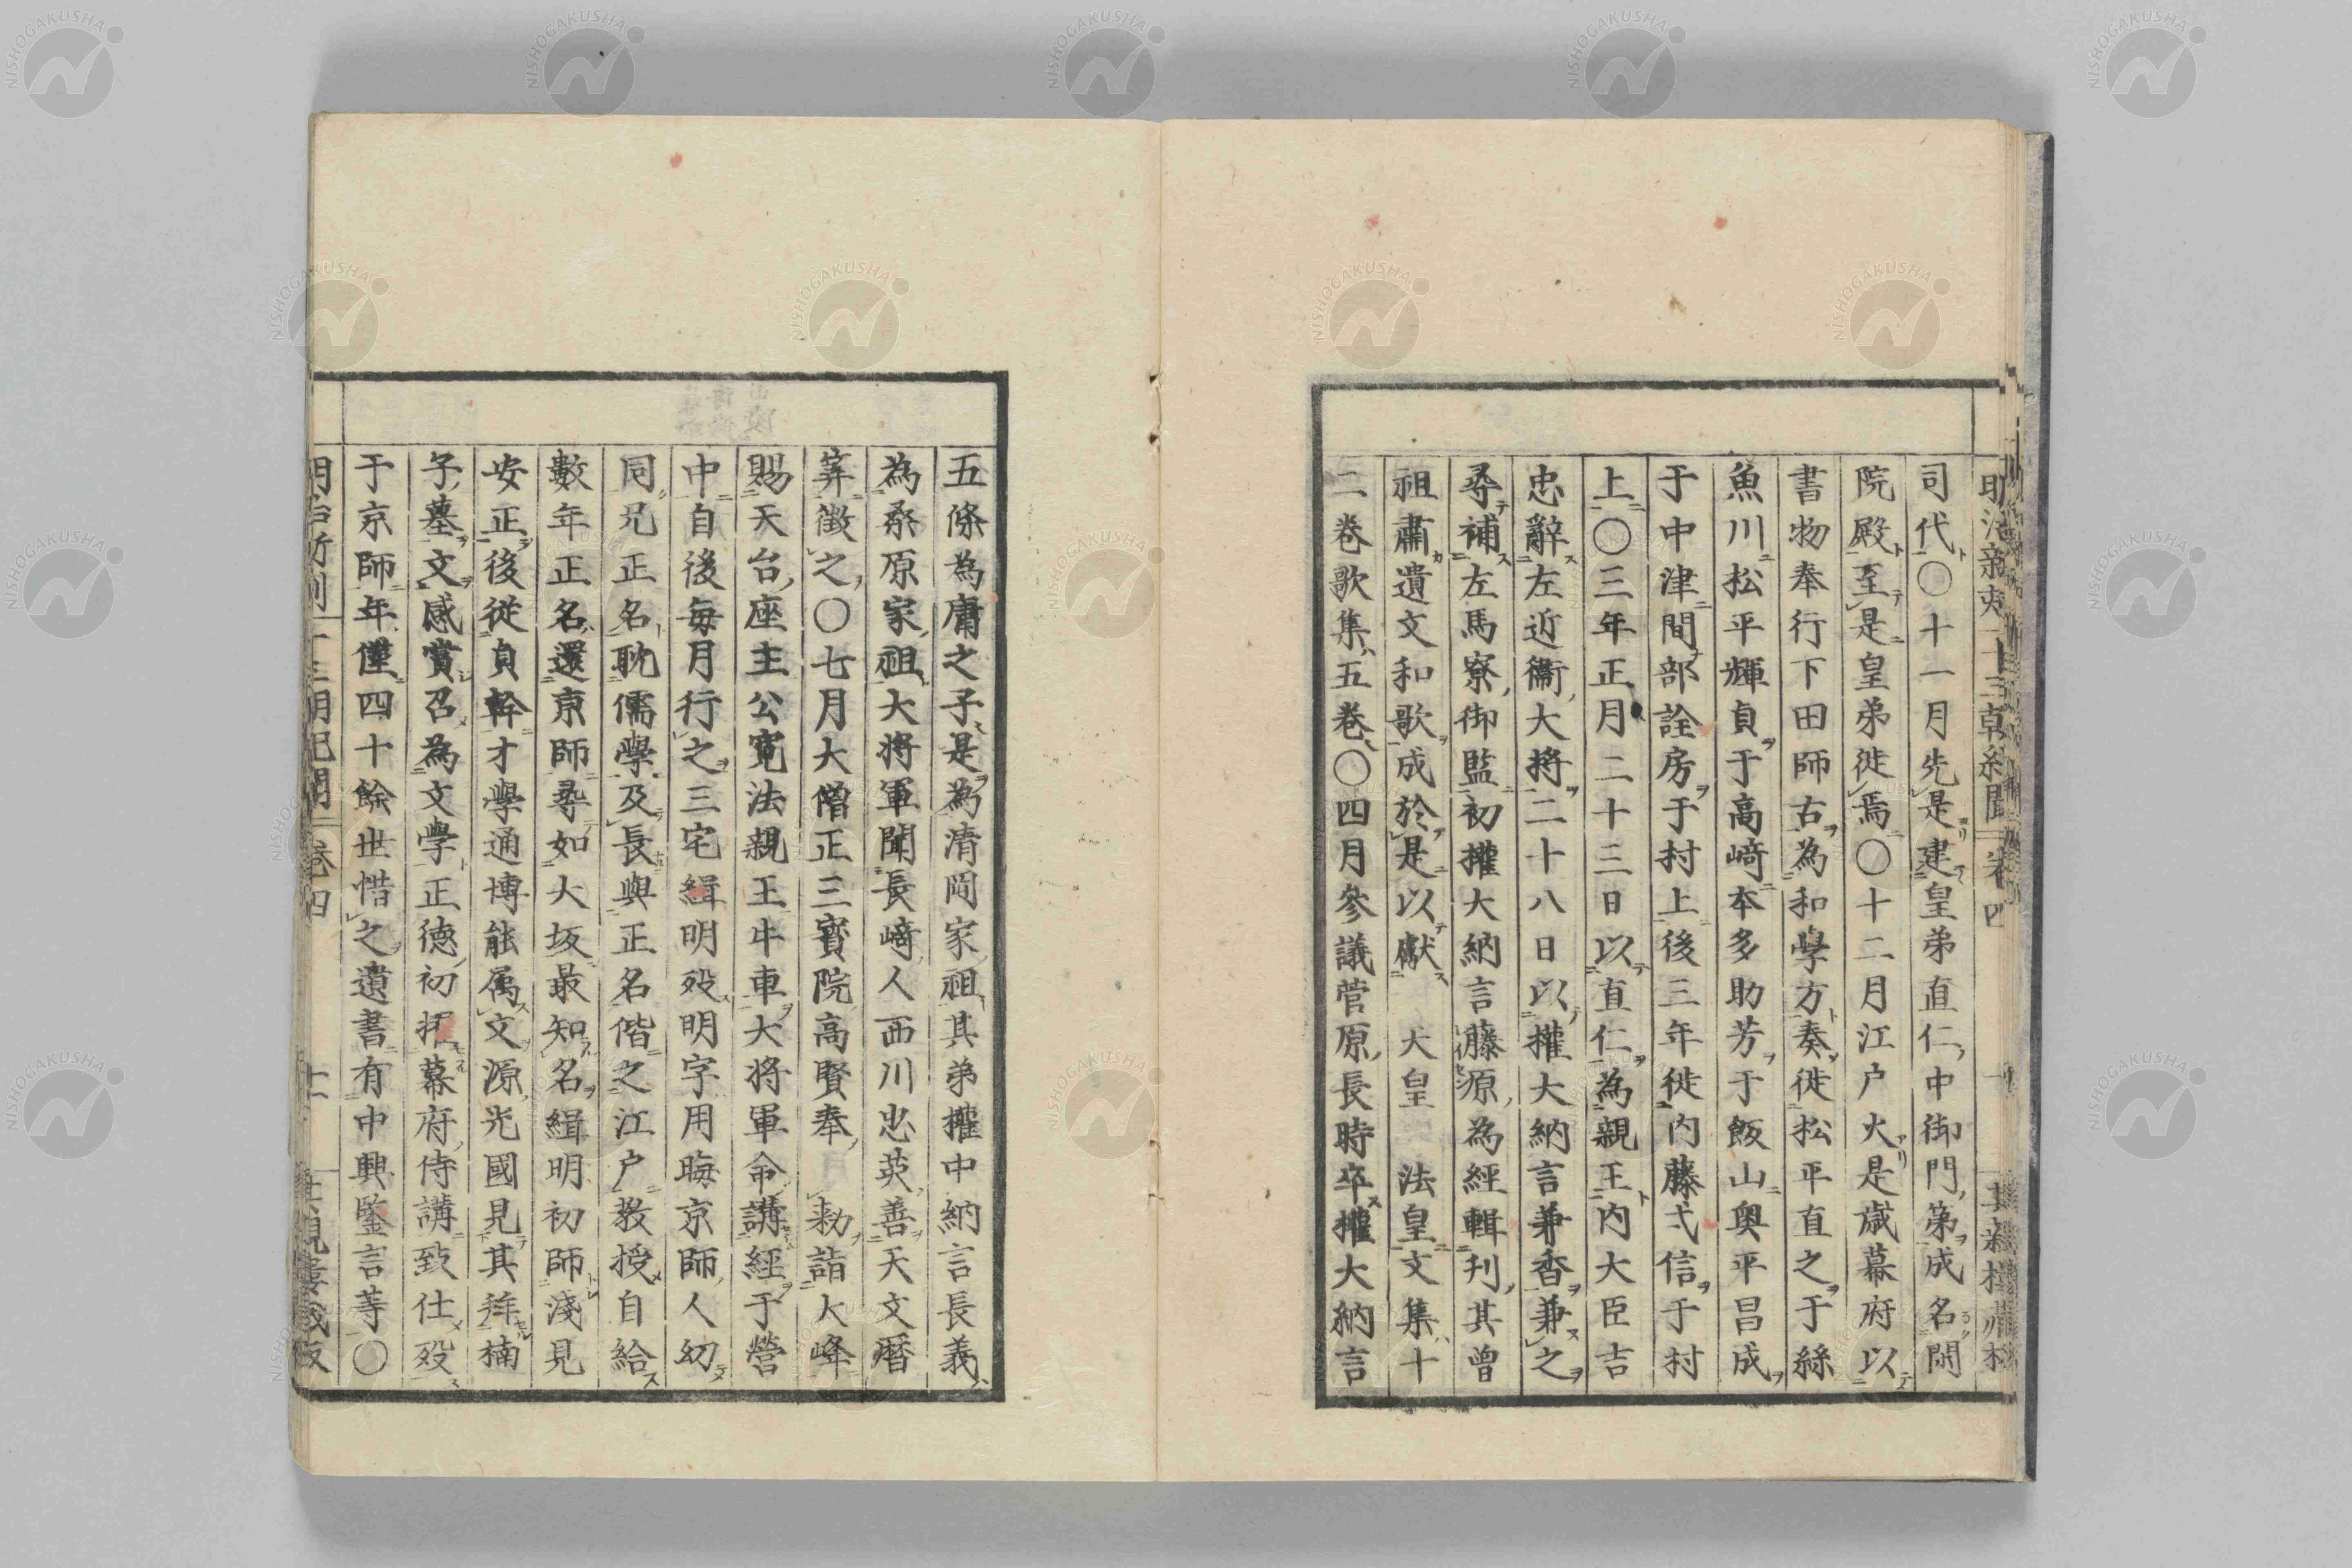 司代○十一月先是建皇弟直仁中御門第成名閑
院殿至是皇弟徙焉○十二月江戸火是歲幕府以
書物奉行下田師古為和學方奏徙松平直之于絲
魚川松平輝貞于高崎本多助芳于飯山奥平昌成
于中津間部詮房于村上後三年徙內藤弌信于村
上○三年正月二十三日以直仁為親王內大臣吉
忠辭左近衞大將二十八日以權大納言兼香兼之
尋補左馬寮御監初權大納言藤原為經輯刊其曾
祖肅遺文和歌成於是以獻 天皇 法皇文集十
二卷歌集五卷○四月參議菅原長時卒權大納言
五條為庸之子是為清岡家祖其弟權中納言長義
為桒原家祖大將軍聞長崎人西川忠英善天文曆
筭徵之○七月大僧正三寶院高賢奉 勅詣大峰
賜天台座主公寬法親王牛車大將軍命講經于營
中自後每月行之三宅緝明歿明字用晦京師人幼
同兄正名耽儒學及長與正名偕之江戸教授自給
數年正名還京師尋如大坂最知名緝明初師淺見
安正後從貞幹才學通博能属文源光國見其祭楠
子墓文感賞召為文學正德初擢幕府侍講致仕歿
于京師年僅四十餘世惜之遺書有中興鑒言等○
明治新刻十三朝紀聞 卷四 十一